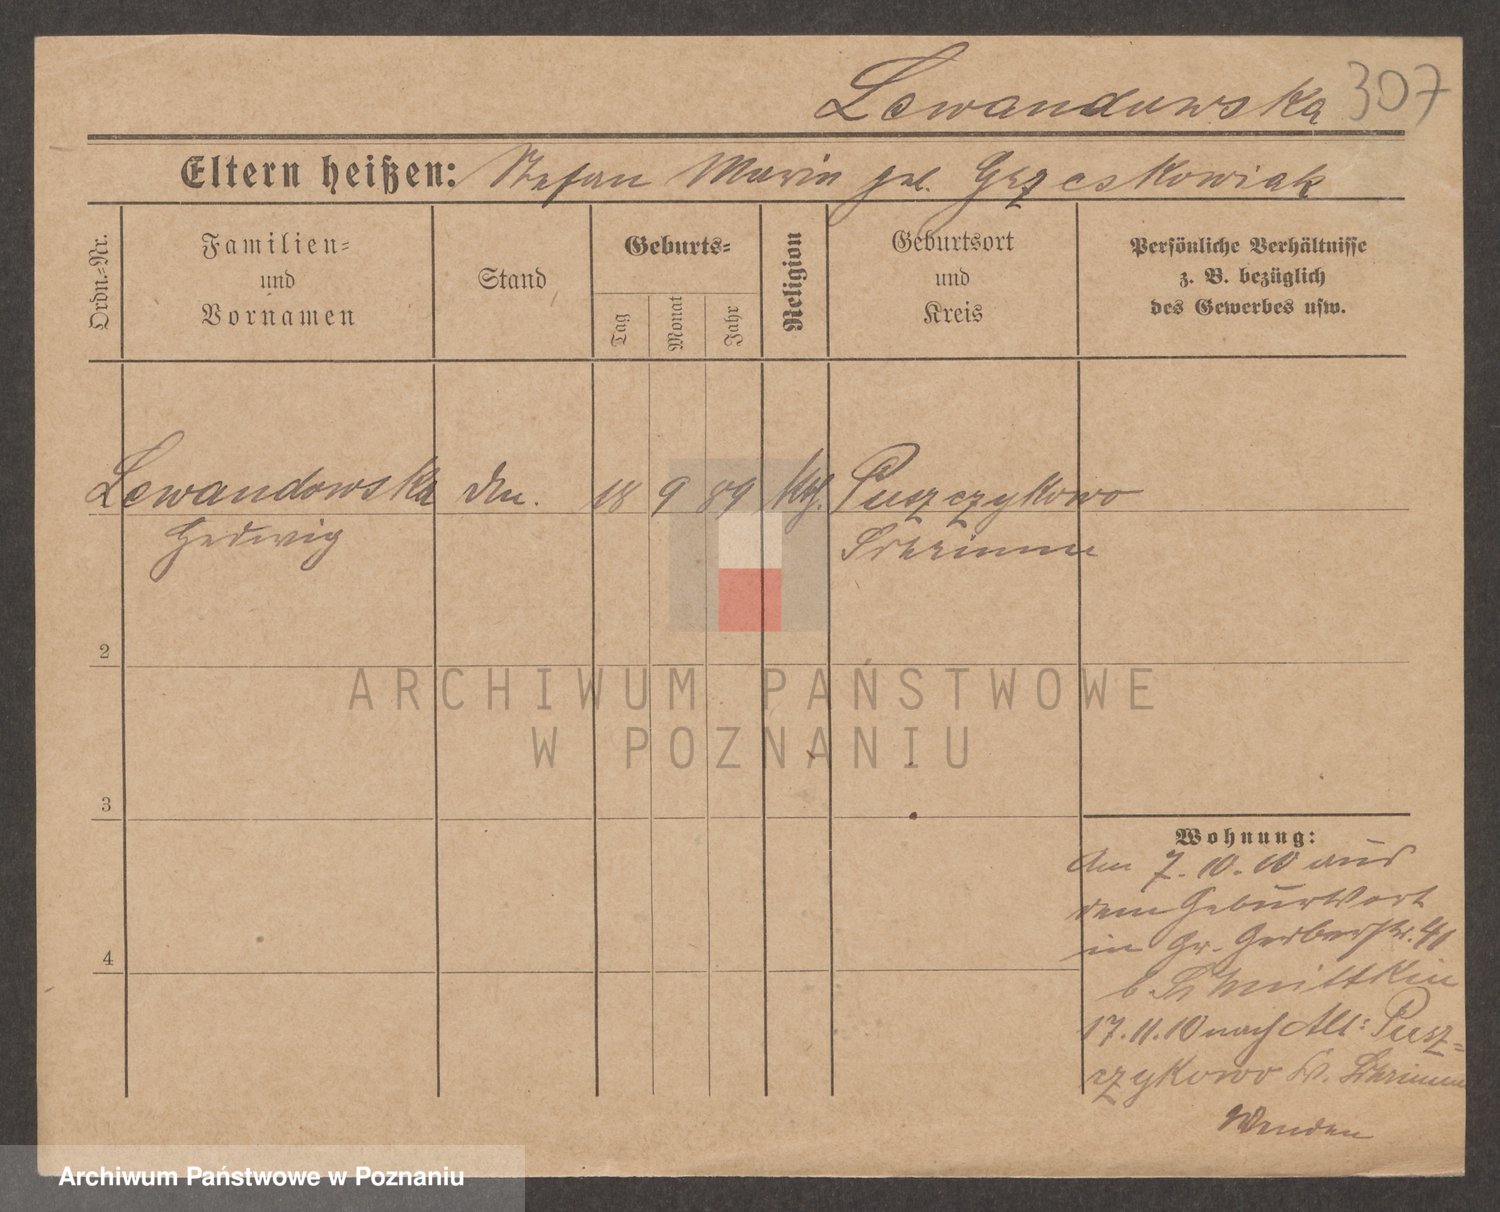 Lewandowska 307
Eltern heißen: Stefan Marie geb. Grzeskowiak
Ordn.-Nr.
Familien-
und
Vornamen
Stand
Geburts-
Tag
Monat
Jahr
Religion
Geburtsort
und
Kreis
Persönliche Verhältnisse
z. B. bezüglich
des Gewerbes usw.
Lewandowska 18 9 89 kth. Puszczykowo
Hedwig Schrimm
2
3
4
Wohnung:
Am 7.10.10 aus
dem Geburtsort
in Gr. Gerberstr. 41
b.
17.11.10 nach Alt: Pusz-
czykowo Kr. Schrimm
Wenden
ARCHIWUM PAŃSTWOWE
W POZNANIU
Archiwum Państwowe w Poznaniu